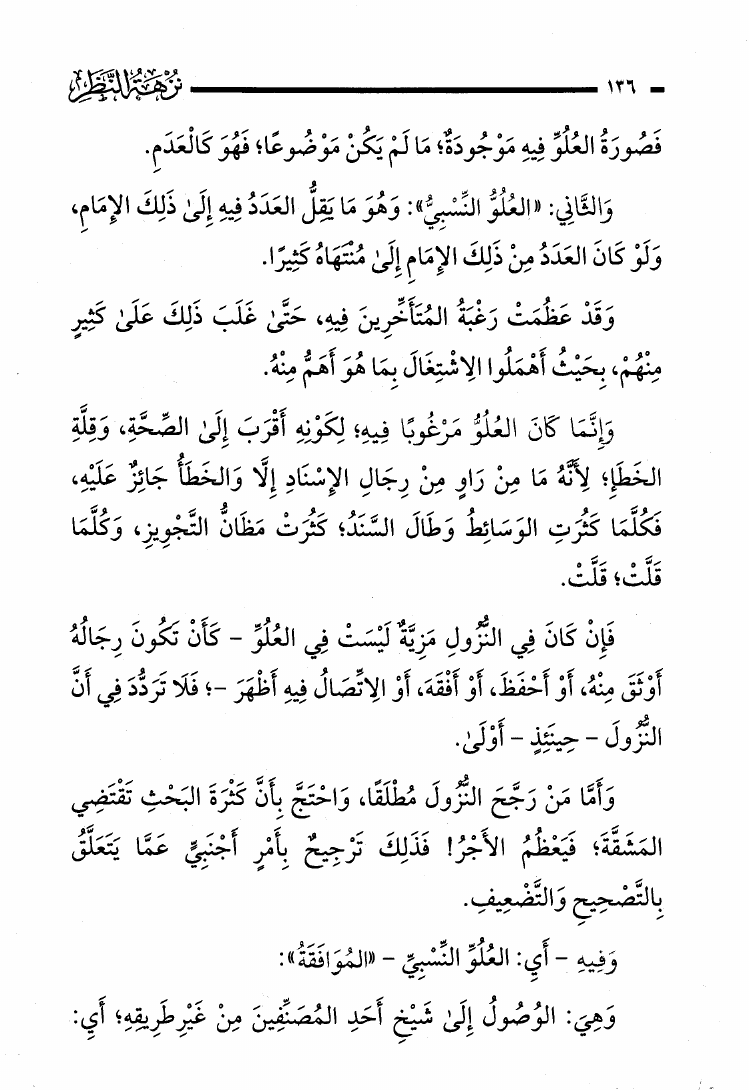 ١٣٦ نُزْهَةُ النَّظَرِ
فَصُورَةُ العُلُوِّ فِيهِ مَوْجُودَةٌ؛ مَا لَمْ يَكُنْ مَوْضُوعًا؛ فَهُوَ كَالْعَدَمِ.
وَالثَّانِي: «العُلُوُّ النِّسْبِيُّ»: وَهُوَ مَا يَقِلُّ العَدَدُ فِيهِ إِلَىٰ ذَلِكَ الإِمَامِ،
وَلَوْ كَانَ العَدَدُ مِنْ ذَلِكَ الإِمَامِ إِلَىٰ مُنْتَهَاهُ كَثِيرًا.
وَقَدْ عَظُمَتْ رَغْبَةُ المُتَأَخِّرِينَ فِيهِ، حَتَّىٰ غَلَبَ ذَلِكَ عَلَىٰ كَثِيرٍ
مِنْهُمْ، بِحَيْثُ أَهْمَلُوا الِاشْتِغَالَ بِمَا هُوَ أَهَمُّ مِنْهُ.
وَإِنَّمَا كَانَ العُلُوُّ مَرْغُوبًا فِيهِ؛ لِكَوْنِهِ أَقْرَبَ إِلَىٰ الصِّحَّةِ، وَقِلَّةِ
الخَطَإِ؛ لِأَنَّهُ مَا مِنْ رَاوٍ مِنْ رِجَالِ الإِسْنَادِ إِلَّا وَالخَطَأُ جَائِزٌ عَلَيْهِ،
فَكُلَّمَا كَثُرَتِ الوَسَائِطُ وَطَالَ السَّنَدُ؛ كَثُرَتْ مَظَانُّ التَّجْوِيزِ، وَكُلَّمَا
قَلَّتْ؛ قَلَّتْ.
فَإِنْ كَانَ فِي النُّزُولِ مَزِيَّةٌ لَيْسَتْ فِي العُلُوِّ – كَأَنْ تَكُونَ رِجَالُهُ
أَوْثَقَ مِنْهُ، أَوْ أَحْفَظَ، أَوْ أَفْقَهَ، أَوْ الِاتِّصَالُ فِيهِ أَظْهَرَ –؛ فَلَا تَرَدُّدَ فِي أَنَّ
النُّزُولَ – حِينَئِذٍ – أَوْلَىٰ.
وَأَمَّا مَنْ رَجَّحَ النُّزُولَ مُطْلَقًا، وَاحْتَجَّ بِأَنَّ كَثْرَةَ البَحْثِ تَقْتَضِي
المَشَقَّةَ؛ فَيَعْظُمُ الأَجْرُ! فَذَلِكَ تَرْجِيحٌ بِأَمْرٍ أَجْنَبِيٍّ عَمَّا يَتَعَلَّقُ
بِالتَّصْحِيحِ وَالتَّضْعِيفِ.
وَفِيهِ – أَيِ: العُلُوِّ النِّسْبِيِّ – «المُوَافَقَةُ»:
وَهِيَ: الوُصُولُ إِلَىٰ شَيْخِ أَحَدِ المُصَنِّفِينَ مِنْ غَيْرِ طَرِيقِهِ؛ أَيِ: